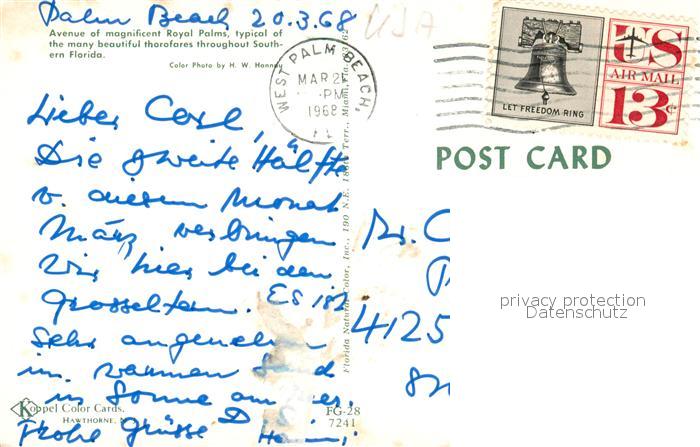 Palm Beach 20.3.68
Avenue of magnificent Royal Palms, typical of
the many beautiful thorofares throughout South-
ern Florida.
Color Photo by H. W. Hannau
USA
WEST PALM BEACH,
MAR 2
PM
1968
LET FREEDOM RING
US
AIR MAIL
13c
POST CARD
Lieber Carl,
Die zweite Hälfte
v. diesem Monat
März verbringen
wir hier bei den
Grosseltern. Es ist
sehr angenehm
im warmen
in Sonne am
Frohe Grüsse
4125
privacy protection
Datenschutz
Koppel Color Cards.
HAWTHORNE, N.
FG-28
7241
Florida Natural Color, Inc., 190 N.E. Terr., Miami, Fla.